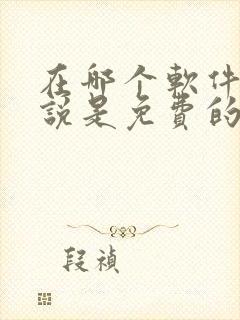 在哪个軟件
說是免費的
段禎